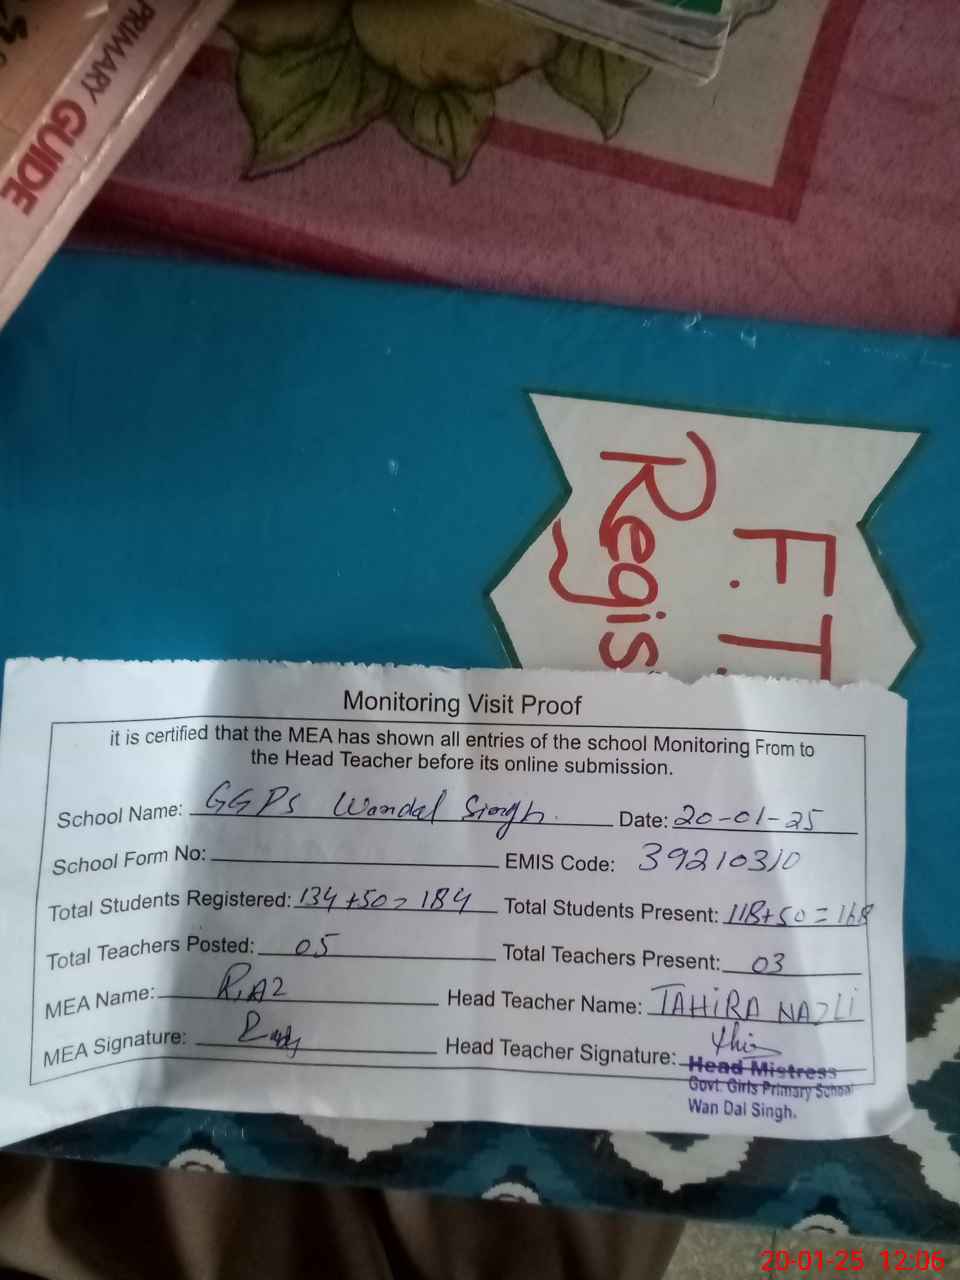 PRIMARY GUIDE
F.T.
Regis
Monitoring Visit Proof
it is certified that the MEA has shown all entries of the school Monitoring From to
the Head Teacher before its online submission.
School Name: GGPS Wandal Singh. Date: 20-01-25
School Form No: EMIS Code: 39210310
Total Students Registered: 134+50=184 Total Students Present: 118+50=168
Total Teachers Posted: 05 Total Teachers Present: 03
MEA Name: RiAZ Head Teacher Name: TAHiRA NAZLi
MEA Signature: Head Teacher Signature:
Head Mistress
Govt. Girls Primary School
Wan Dal Singh.
20-01-25 12:06